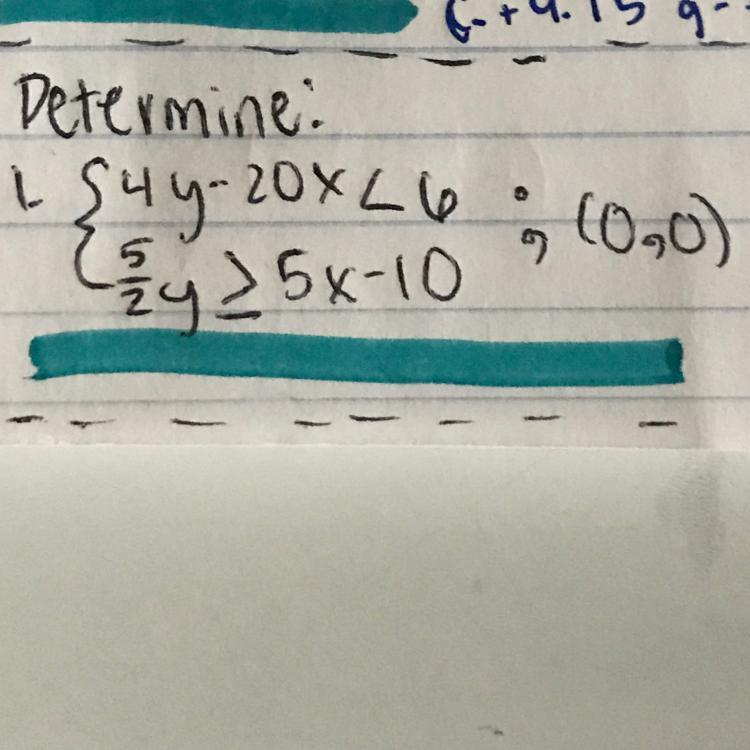 Determine:
1. { 4y-20x < 6 ; (0,0)
5/2 y ≥ 5x-10